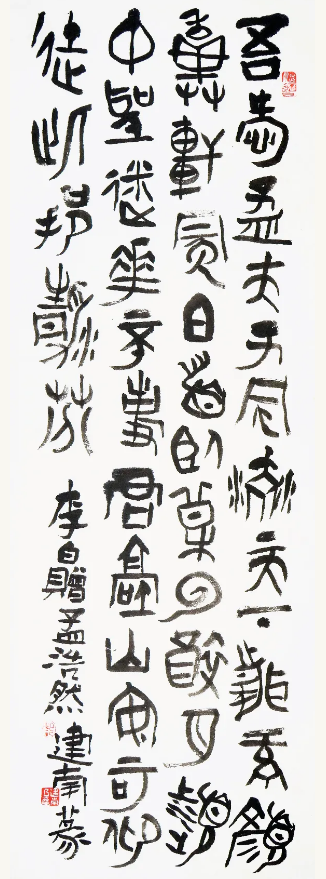 吾愛孟夫子風流天下聞紅顏
棄軒冕白首臥松雲醉月頻
中聖迷花不事君高山安可仰
徒此揖清芬
李白贈孟浩然 建南篆